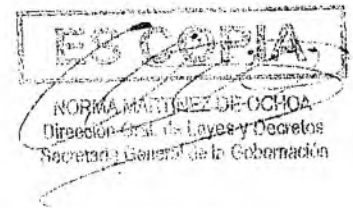 ES COPIA
NORMA MARTINEZ DE OCHOA
Dirección Gral. de Leyes y Decretos
Secretaría General de la Gobernación